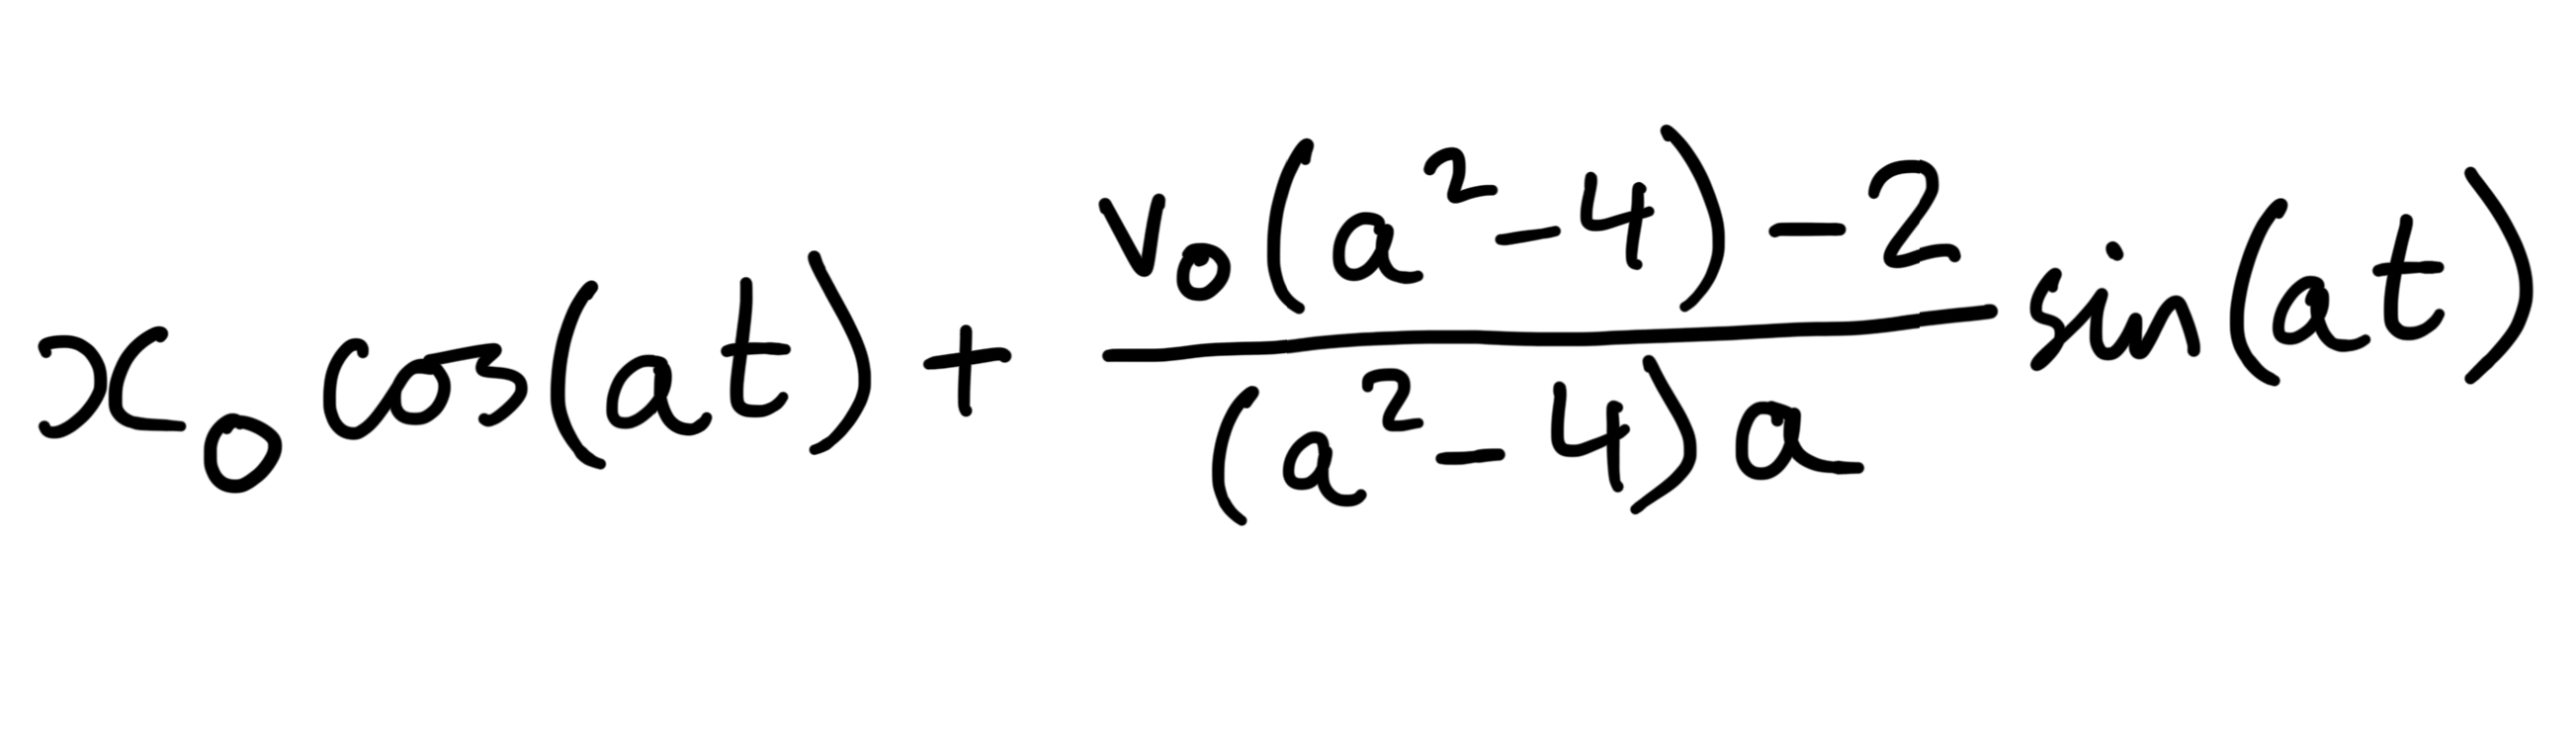 x_0 cos(at) + \frac{v_0(a^2-4)-2}{(a^2-4)a} sin(at)